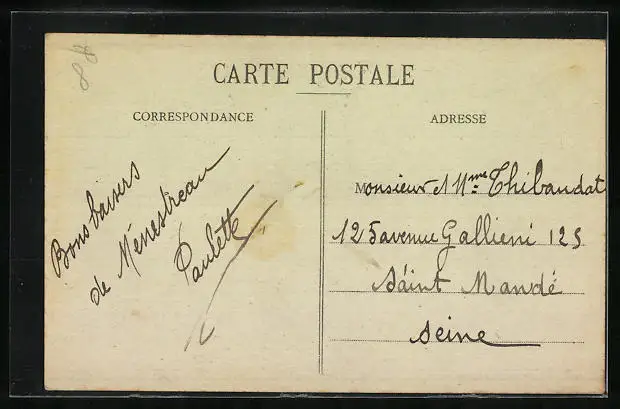 88
CARTE POSTALE
CORRESPONDANCE
Bons baisers
de Ménestreau
Paulette
ADRESSE
Monsieur et Mme Thibaudat
125 avenue Gallieni 125
Saint Mandé
Seine